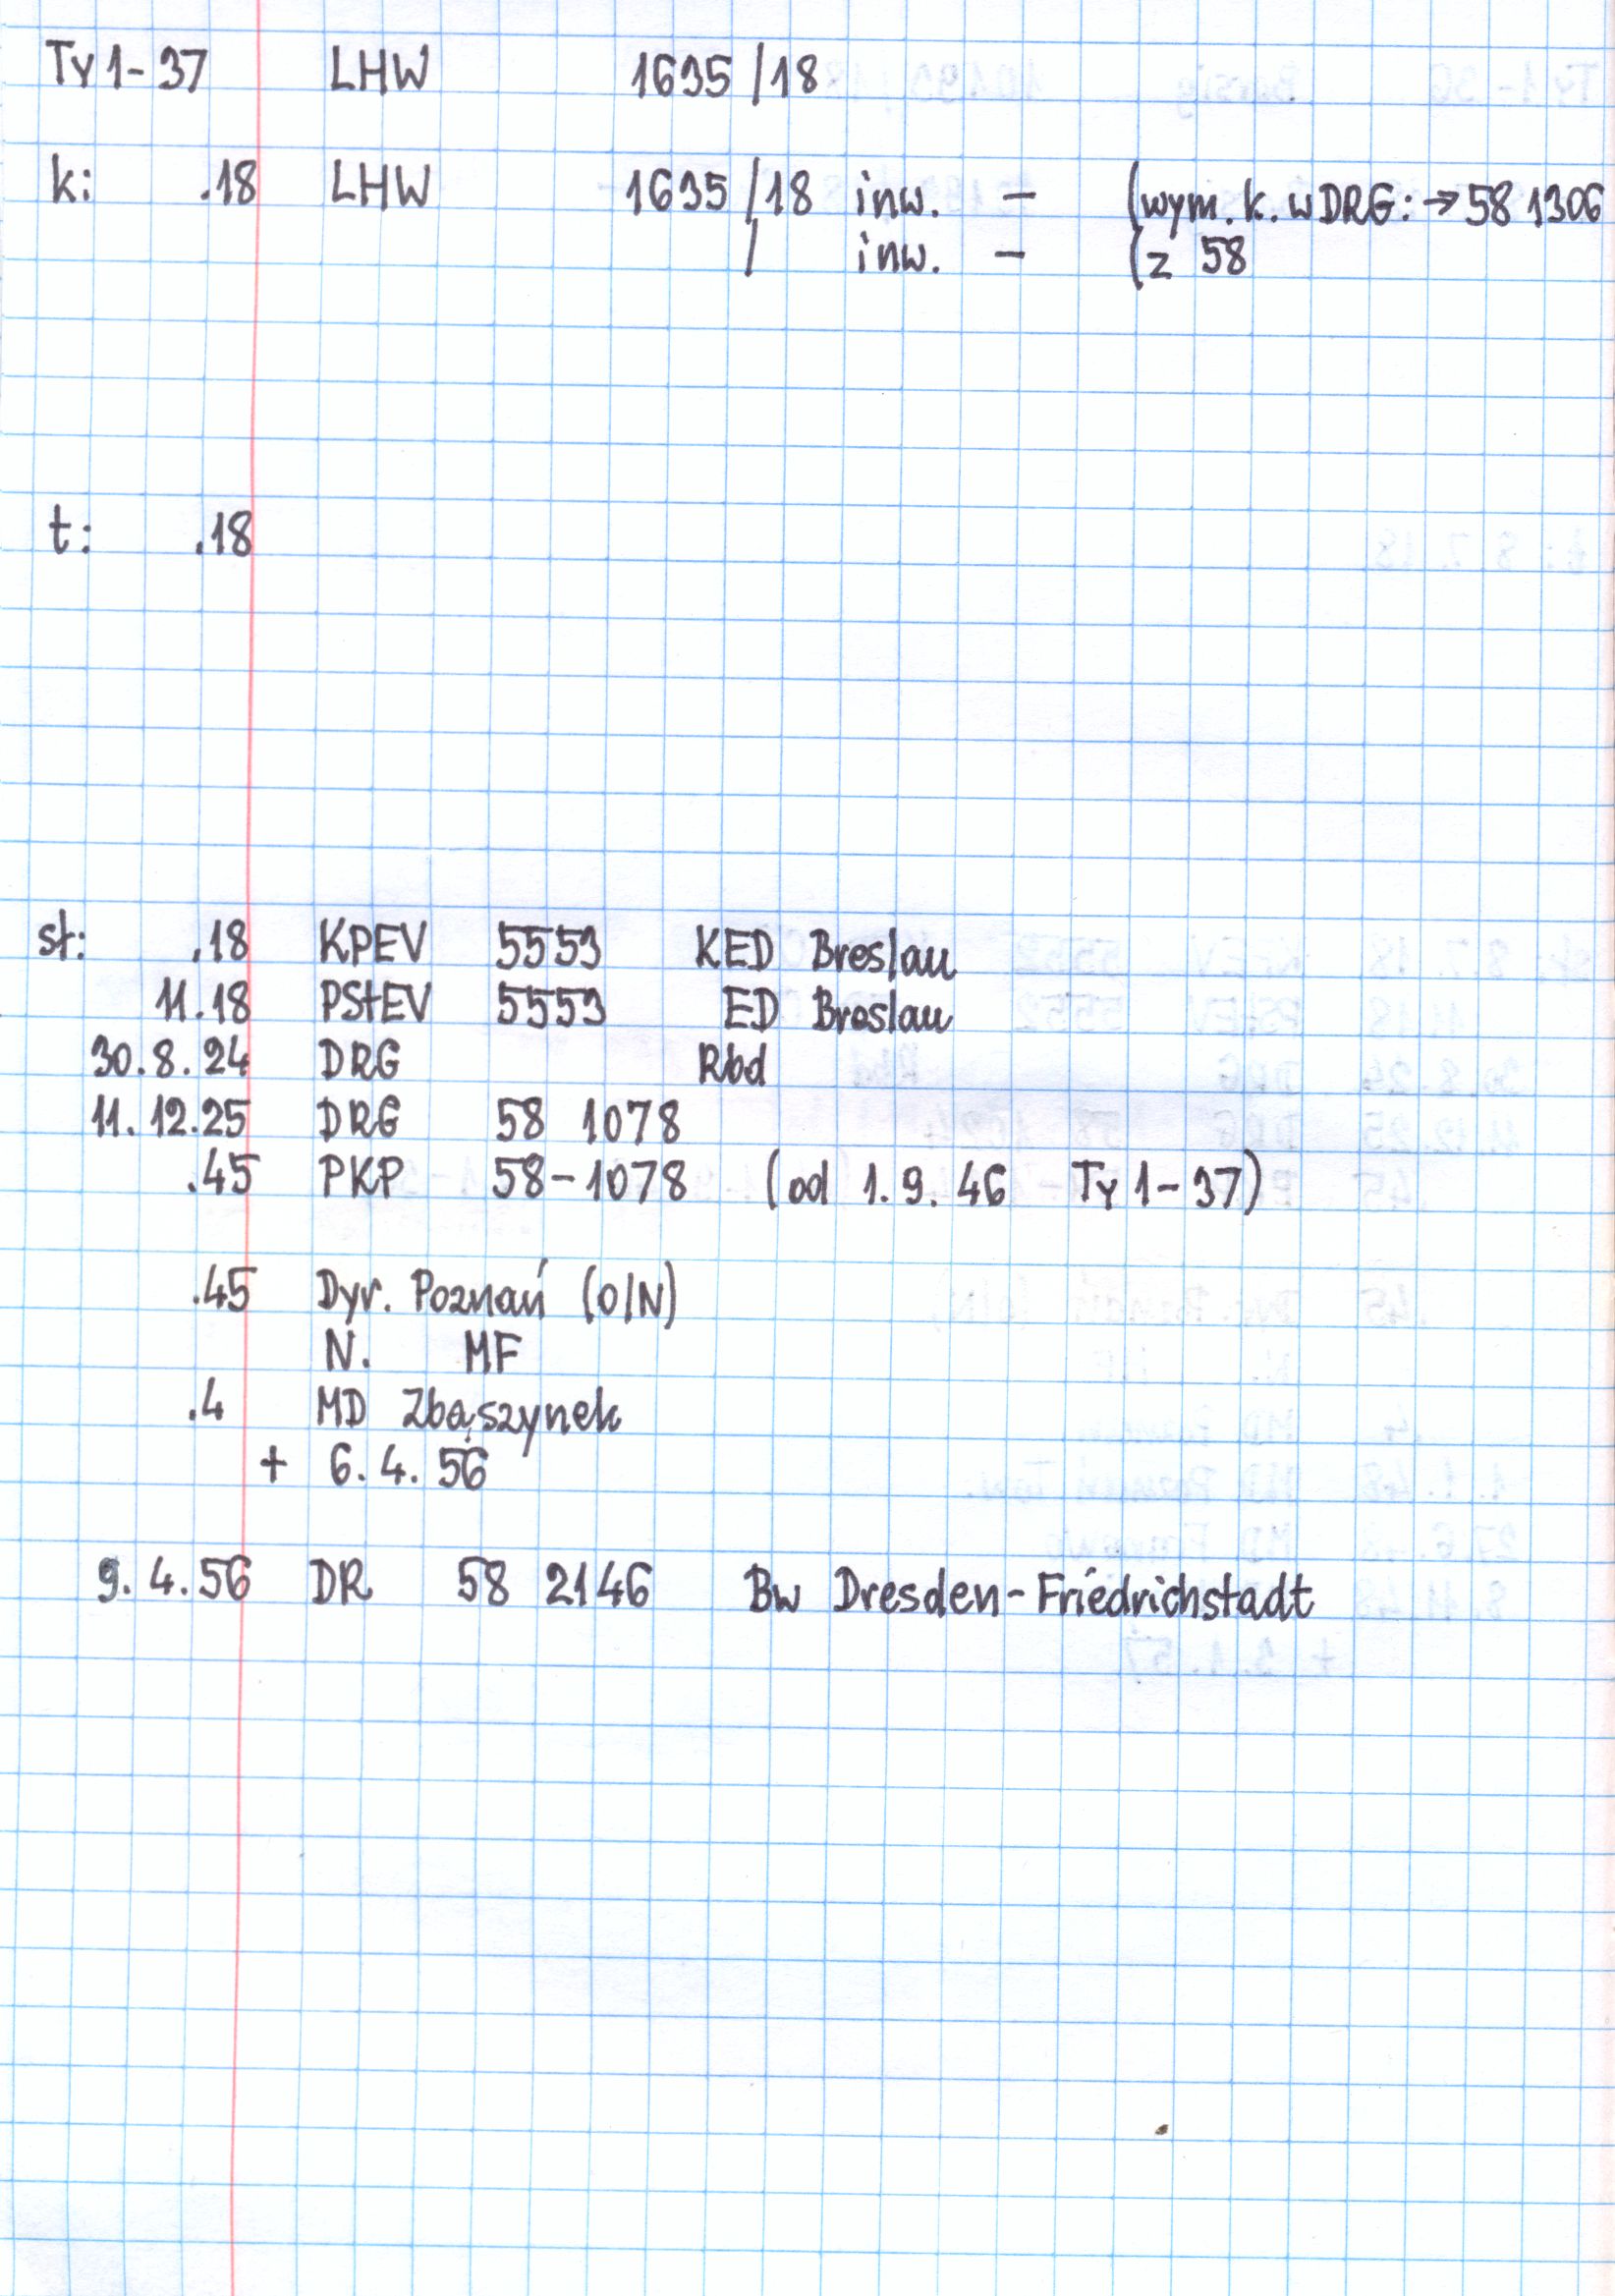 Ty 1-37 LHW 1635/18
k: .18 LHW 1635/18 inw. - (wym. k. w DRG: → 58 1306
/ inw. - (z 58
t: .18
sł: .18 KPEV 5553 KED Breslau
11.18 PStEV 5553 ED Breslau
30.8.24 DRG Rbd
11.12.25 DRG 58 1078
.45 PKP 58-1078 (od 1.9.46 Ty 1-37)
.45 Dyr. Poznań (O/N)
N. MF
.4 MD Zbąszynek
+ 6.4.56
9.4.56 DR 58 2146 Bw Dresden-Friedrichstadt